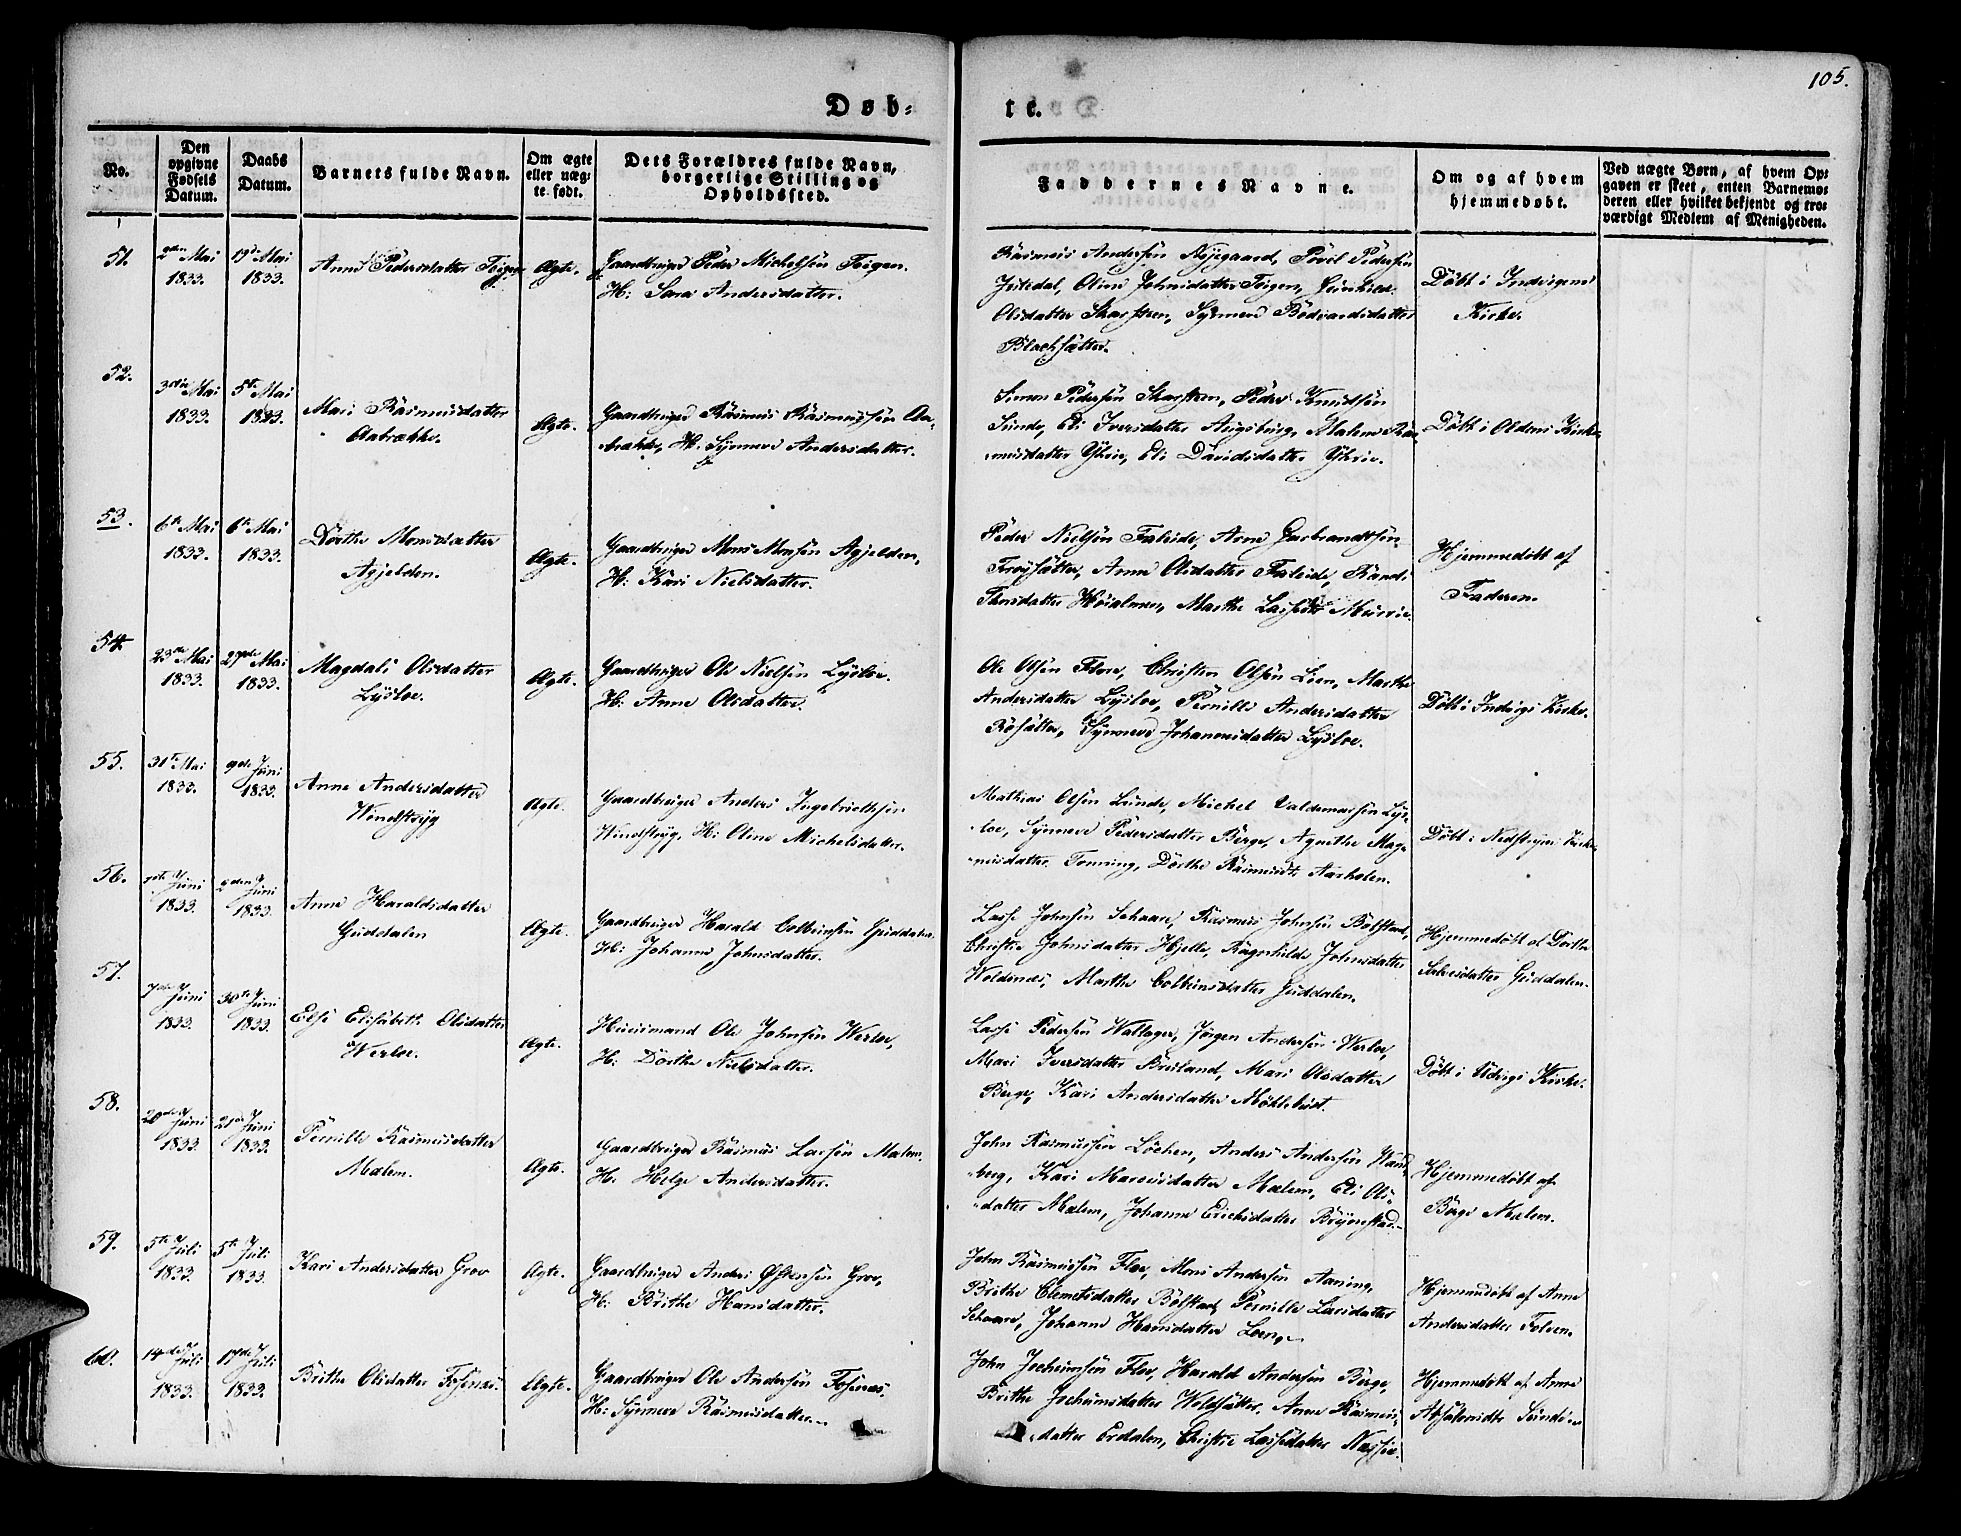 105.
Døb-
te.
No.
Den opgivne Fødsels Datum.
Daabs Datum.
Barnets fulde Navn.
Om ægte eller uægte født.
Dets Forældres fulde Navn, borgerlige Stilling og Opholdssted.
Faddernes Navne.
Om og af hvem hjemmedøbt.
Ved uægte Børn, af hvem Opgaven er skeet, enten Barnemoderen eller hvilket bekjendt og troværdigt Medlem af Menigheden.
51.
2den Mai 1833.
19de Mai 1833.
Anne Pedersdatter Teigen
Ægte.
Gaardbruger Peder Michelsen Teigen.
H: Sara Andersdatter.
Rasmus Andersen Nyegaard, Povel Pedersen
Jostedal, Oline Johnsdatter Teigen,
Olsdatter Skarsteen, Synneve Bødvardsdatter
Blachsætter.
Döbt i Indvigens
Kirke.
52.
3die Mai 1833.
5te Mai 1833.
Mari Rasmusdatter
Aabrække.
Ægte.
Gaardbruger Rasmus Rasmussen Aa-
brække, H: Synneve Andersdatter.
Simon Pedersen Skarsteen, Peder Knudsen
Sunde, Eli Iversdatter Augsburg, Malene Ras-
musdatter Ytrie, Eli Davidsdatter Ytrie.
Döbt i Oldens Kirke
53.
6te Mai 1833.
6te Mai 1833.
Dorthe Monsdatter
Agjelden.
Ægte.
Gaardbruger Mons Monsen Agjelden,
H: Kari Nielsdatter.
Peder Nielsen Faleide, Arne Garbrandtsen
Frøysætter, Anne Olsdatter Faleide, Randi
Thorsdatter Hoialmen, Marthe Lassedtr Muurie.
Hjemmedöbt af
Faderen.
54.
23de Mai 1833.
27de Mai 1833.
Magdali Olsdatter
Lysloe.
Ægte.
Gaardbruger Ole Nielsen Lysloe.
H: Anne Olsdatter.
Ole Olsen Floe, Christen Olsen Loen, Marthe
Andersdatter Lysloe, Pernille Andersdatter
Røsætter, Synneve Johannesdatter Lysloe.
Döbt i Indvigs Kirke.
55.
31te Mai 1833.
9de Juni 1833.
Anne Andersdatter
Windstryg
Ægte.
Gaardbruger Anders Ingebrictsen
Windstryg, H: Oline Michelsdatter.
Mathias Olsen Lunde, Michel Valdemarsen Lys-
loe, Synneve Pedersdatter Berge, Agnethe Mag-
nusdatter Tonning, Dorthe Rasmusdtr Aarholen.
Döbt i Nedstryns Kirke
56.
Juni 1833.
2den Juni 1833.
Anne Haraldsdatter
Guddalen
Ægte.
Gaardbruger Harald Colbeinsen Guddalen
H: Johanne Johnsdatter.
Lasse Johnsen Schaare, Rasmus Johnsen Bolstad,
Christie Johnsdatter Hjelle, Ragnhilde Johnsdatter
Woldsnes, Marthe Colbeinsdatter Guddalen.
Hjemmedöbt af Dorthe
Guddalen.
57.
7de Juni 1833.
30te Juni 1833.
Else Elisabeth Olsdatter
Werloe.
Ægte.
Huusmand Ole Johnsen Werloe,
H: Dorthe Nielsdatter.
Lasse Pedersen Wallager, Jørgen Andersen Werloe,
Mari Iversdatter Breiland, Mari Olsdatter
Berge, Kari Andersdatter Møklebust.
Döbt i Udvigs Kirke.
58.
20de Juni 1833.
21de Juni 1833.
Pernille Rasmusdatter
Malem.
Ægte.
Gaardbruger Rasmus Larsen Malem.
H: Helge Andersdatter.
John Rasmussen Löchen, Anders Andersen
berg, Kari Marcusdatter Malem, Eli Ols-
datter Malem, Johanne Erichsdatter Bryenstad.
Hjemmedöbt af
Börge Malem.
59.
5te Juli 1833.
5te Juli 1833.
Kari Andersdatter Grov
Ægte.
Gaardbruger Anders Østensen Grov,
H: Brithe Hansdatter.
John Rasmussen Floe, Mons Andersen Aaning,
Brithe Clemetsdatter Bolstad, Pernille Larsdatter
Schaare, Johanne Hansdatter Loen.
Hjemmedöbt af Anne
Andersdatter Folven.
60.
14de Juli 1833.
17de Juli 1833.
Brithe Olsdatter Fosnæs.
Ægte.
Gaardbruger Ole Andersen Fosnæs.
H: Synneve Rasmusdatter.
John Jochumsen Floe, Harald Andersen Berge,
Brithe Jochumsdatter Woldsætter, Anne Rasmus-
datter Erdalen, Christie Lassedatter Nessie.
Hjemmedöbt af Anne